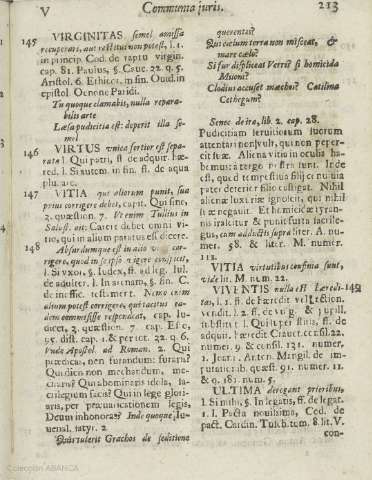 V Communia juris. 213
145 VIRGINITAS semel amissa
recuperari, aut restitui non potest, l. 1.
in princip. Cod. de raptu virgin.
cap. 81. Paulus, §. Cauc. 22. q. 5.
Aristot. 6. Ethicor. in fin. Ouid. in
epistol. Oenone Paridi.
Tu quoque clamabis, nulla repara-
bilis arte
Læsa pudicitia est: deperit illa se-
mel
146 VIRTUS unica fortior est sepa-
rate l. Qui patri, ff. de adquir. hæ-
red. l. Si autem. in fin. ff. de aqua
plu. arc.
147 VITIA qui aliorum punit, sua
prius corrigere debet, capit. Qui sine,
3. quæstion. 7. Vt enim Tullius in
Salust. ait: Carere debet omni vi-
tio, qui in alium paratus est dicere.
148 Absurdumque est in alio
corri-
gere, quod in se ipso
l. Si vxor, §. Iudex, ff. ad leg. Iul.
de adulter. l. In arenam, §. fin. C.
de inoffic. testament. Nemo enim
alium potest corrigere, qui tacitus ea-
dem commisisse respondeat, cap. Iu-
dicet, 3. quæstion. 7. cap.
95. dist. cap. 1. & per tot. 22. q. 6.
Vnde Apostol. ad Roman. 2. Qui
prædicas, non furandum: furaris?
Qui dicis non mechandum, me-
charis? Qui abominaris idola, sa-
crilegium facis? Qui in lege gloria-
ris, per præuaricationem legis,
Deum inhonoras? Inde quoque, Iu-
uenal. satyr. 2.
Quis tulerit Grachos de seditione
querentes?
Quis cœlum terra non misceat, &
mare cœlo?
Si fur displiceat Verri? si homicida
Miloni?
Clodius accuset mœchos? Catilina
Cethegum?
Senec. de ira, lib. 2. cap. 28.
Pudicitiam seruitiorum suorum
attentari non vult, qui non peper-
cit suæ. Aliena vitia in oculis ha-
bemus: à tergo nostra sunt. Inde
est, quod tempestiua filij conuiuia
pater deterior filio castigat. Nihil
alienæ luxuriæ ignoscit, qui nihil
suæ negauit. Et homicidæ tyran-
nus irascitur, & punit furta sacrile-
gus, cum adductis supra liter. A. nu-
mer. 58. & liter. M. numer.
112.
VITIA virtutibus confinia sunt,
vide lit. M. num. 22.
VIVENTIS nulla est hæredi- 149
tas, l. 1. ff. de hæredit. vel action.
vendit. l. 2. ff. de vulg. & pupill.
substitut. l. Qui superstitis, ff. de
adquir. hæredit. Crauet. consil. 22.
numer. 9. & consil. 131. numer.
1. Ioan. Anton. Mangil. de im-
putationib. quæst. 91. numer. 11.
& q. 181. num. 5.
ULTIMA derogant prioribus,
l. Si mihi, §. In legatis, ff. de legat.
1. l. Pacta nouissima, Cod. de
pact. Cardin. Tusch. tom. 8. lit. V.
con-
Colección ABANCA